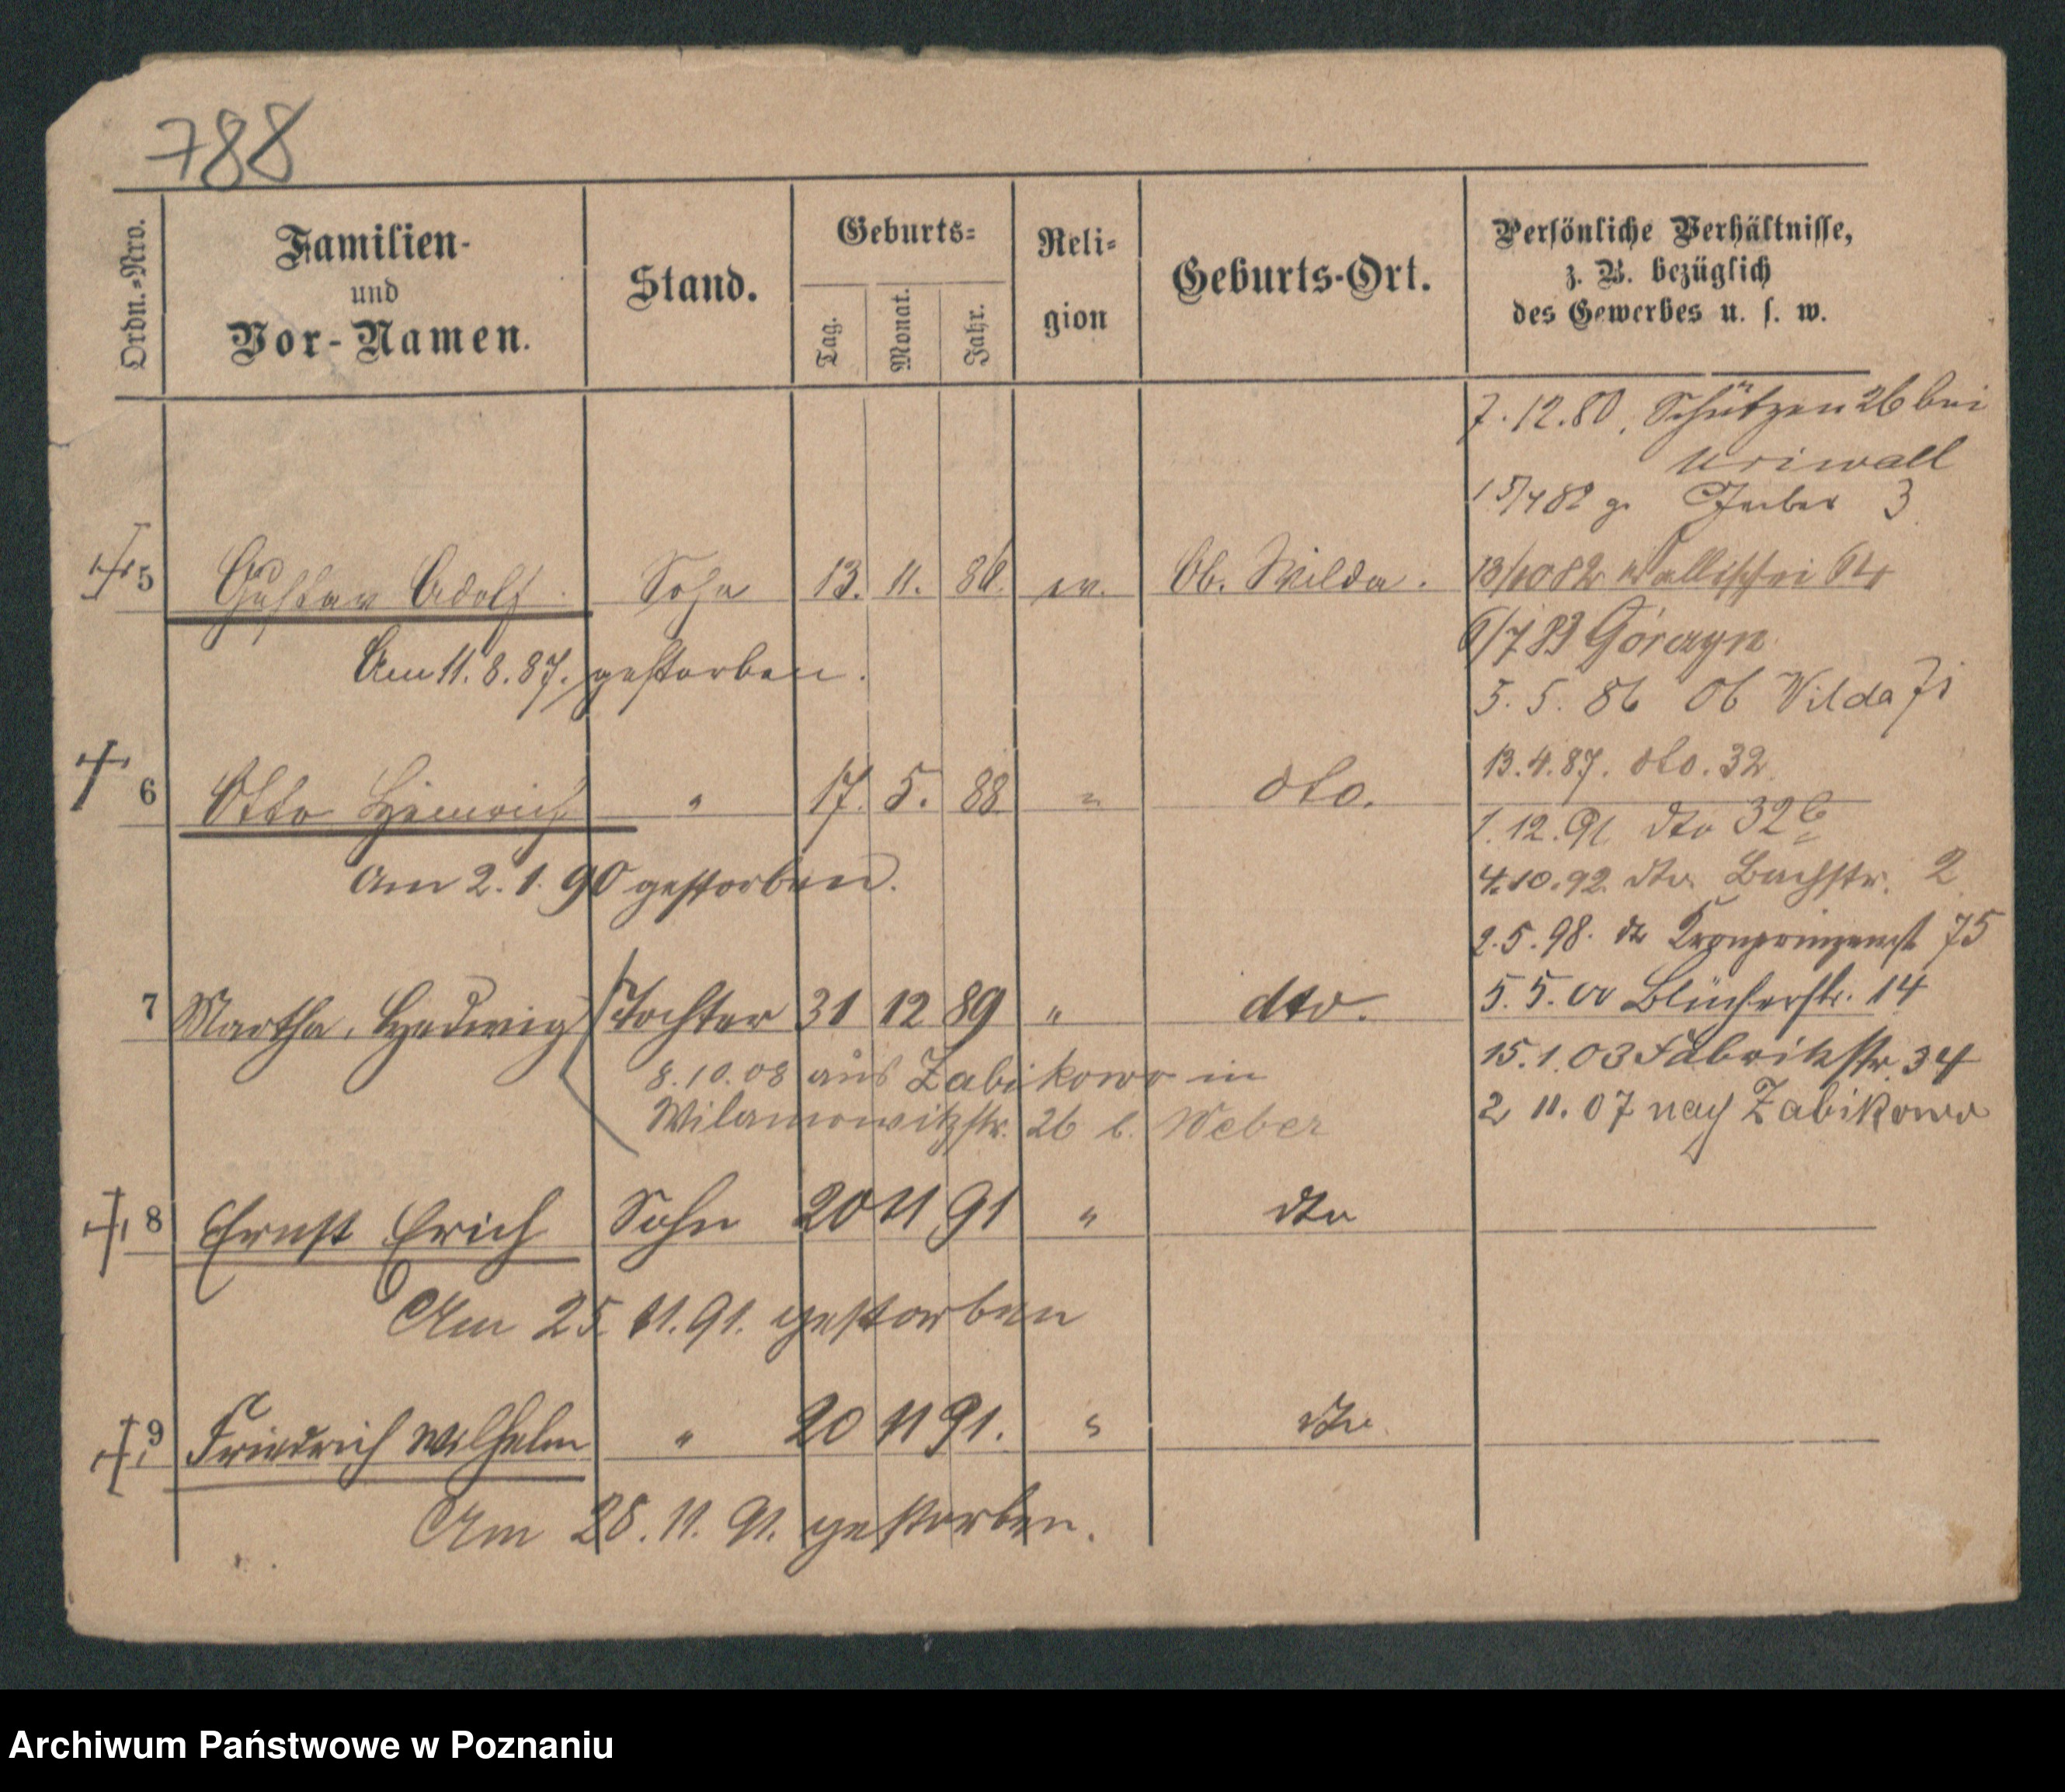 788
Ordn.-Nro.
Familien- und Vor-Namen.
Stand.
Geburts-
Tag. Monat. Jahr.
Religion
Geburts-Ort.
Persönliche Verhältnisse,
z. B. bezüglich
des Gewerbes u. s. w.
7.12.80, Schützen 26 bei
Uriwall
15/4 82 gr. Gerber 3
5 Gustav Adolf Sohn 13. 11. 86 ev. Ob. Wilda.
13/10 82 Wallischei
6/7 83 Górczyn
Am 11.8.87. gestorben.
5.5.86 Ob Wilda
6 Otto Heinrich " 17. 5. 88 " dto.
13.4.87. dto. 32
1.12.91 dto 32
Am 2.1.90 gestorben.
4.10.92 dto. Bachstr. 2
2.5.98. dto Kronprinzenst 75
7 Martha, Hedwig Tochter 31 12 89 " dto.
5.5.00 Blücherstr. 14
15.1.03 Fabrikstr. 34
8.10.08 aus Zabikowo in
Wilamowitzstr. 26 b. Weber
2 11.07 nach Zabikowo
8 Ernst Erich Sohn 20 11 91 " dto
Am 25. 11. 91. gestorben
9 Friedrich Wilhelm " 20 11 91. " dto
Am 28. 11. 91. gestorben.
Archiwum Państwowe w Poznaniu